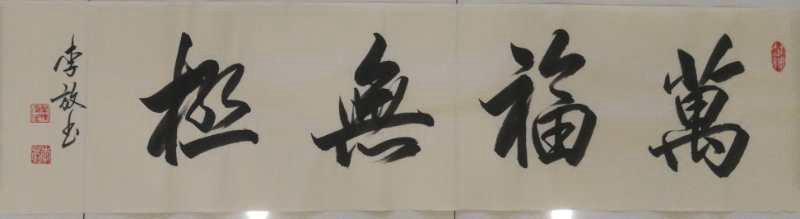 萬福無極
李放书